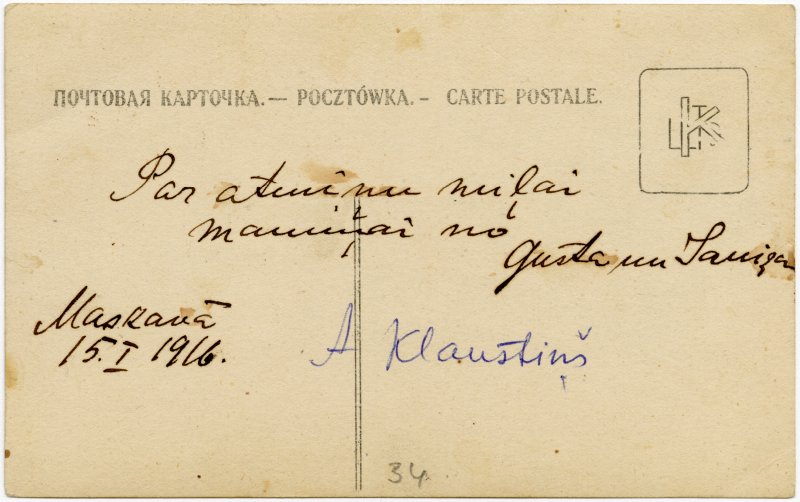 ПОЧТОВАЯ КАРТОЧКА.— POCZTÓWKA.- CARTE POSTALE.
Par atmiņu miļai
mamiņai no
Gusta un
Maskavā
15.I 1916.
A Klaustiņš
34